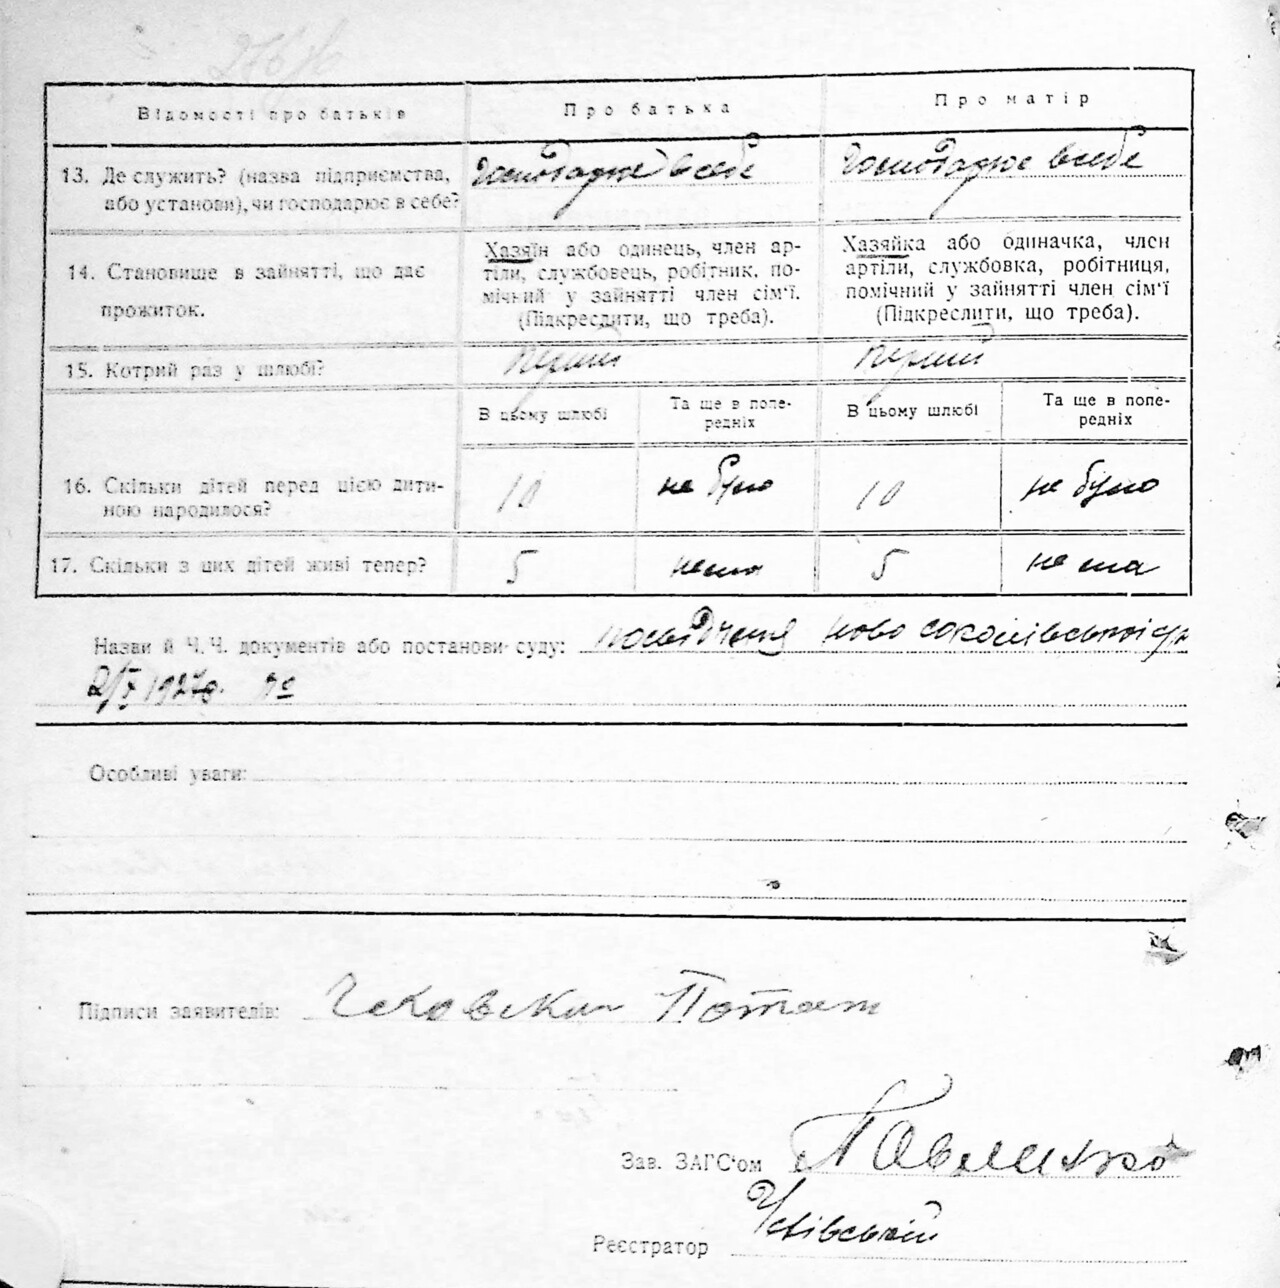 276/16
Відомості про батьків
Про батька
Про матір
13. Де служить? (назва підприємства, або установи), чи господарює в себе?
Господарює в себе
Господарює в себе
14. Становище в зайнятті, що дає прожиток.
Хазяїн або одинець, член ар-
тіли, службовець, робітник, по-
мічний у зайнятті член сім'ї.
(Підкреслити, що треба).
Хазяйка або одиначка, член
артіли, службовка, робітниця,
помічний у зайнятті член сім'ї
(Підкреслити, що треба).
15. Котрий раз у шлюбі?
перший
перший
В цьому шлюбі
Та ще в попе-
редніх
В цьому шлюбі
Та ще в попе-
редніх
16. Скільки дітей перед цією дити-
ною народилося?
10
не було
10
не було
17. Скільки з цих дітей живі тепер?
5
нема
5
нема
Назви й Ч.Ч. документів або постанови суду: посвідчення ново
1927р. №
Особливі уваги:
Підписи заявителів: Потап
Зав. ЗАГС'ом
Реєстратор